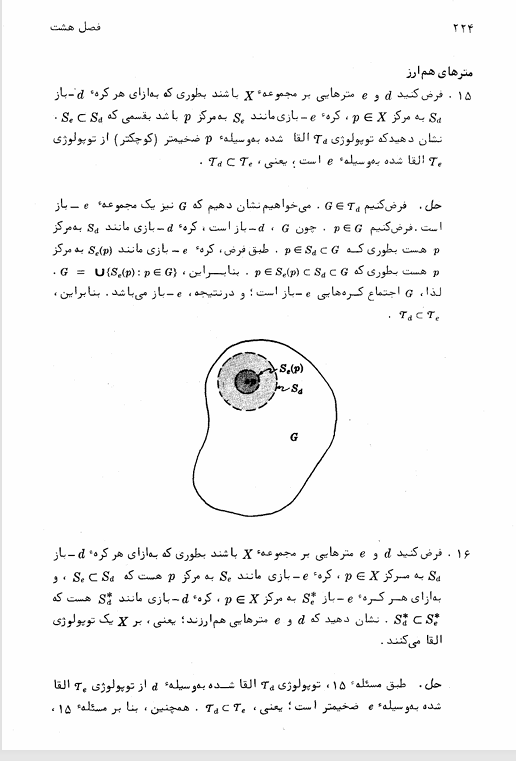 ۲۲۴ فصل هشت
مترهای هم‌ارز
۱۵ . فرض کنید d و e مترهایی بر مجموعهٔ X باشند بطوری که به‌ازای هر کرهٔ d-باز
S_d به مرکز p ∈ X ، کرهٔ e-بازی مانند S_e به‌مرکز p باشد بقسمی که S_e ⊂ S_d .
نشان دهیدکه توپولوژی 𝒯_d القا شده به‌وسیلهٔ d ضخیمتر (کوچکتر) از توپولوژی
𝒯_e القا شده به‌وسیلهٔ e است؛ یعنی، 𝒯_d ⊂ 𝒯_e .
حل. فرض‌کنیم G ∈ 𝒯_d . می‌خواهیم نشان دهیم که G نیز یک مجموعهٔ e-باز
است. فرض‌کنیم p ∈ G . چون G ، d-باز است، کرهٔ d-بازی مانند S_d به‌مرکز
p هست بطوری کـه p ∈ S_d ⊂ G . طبق فرض، کرهٔ e-بازی مانند S_e(p) به مرکز
p هست بطوری که p ∈ S_e(p) ⊂ S_d ⊂ G . بنابـراین، G = ∪{S_e(p) : p ∈ G} .
لذا، G اجتماع کـره‌هایی e-باز است؛ و درنتیجه، e-باز می‌باشد. بنابراین،
𝒯_d ⊂ 𝒯_e .
S_e(p)
p
S_d
G
۱۶ . فرض کنید d و e مترهایی بر مجموعهٔ X باشند بطوری که به‌ازای هر کرهٔ d-باز
S_d به مـرکز p ∈ X ، کرهٔ e-بازی مانند S_e به مرکز p هست که S_e ⊂ S_d ، و
به‌ازای هـر کـرهٔ e-باز S*_e به مرکز p ∈ X ، کرهٔ d-بازی مانند S*_d هست که
S*_d ⊂ S*_e . نشان دهید که d و e مترهایی هم‌ارزند؛ یعنی، بر X یک توپولوژی
القا می‌کنند .
حل. طبق مسئلهٔ ۱۵، توپولوژی 𝒯_d القا شـده به‌وسیلهٔ d از توپولوژی 𝒯_e القا
شده به‌وسیلهٔ e ضخیمتر است؛ یعنی، 𝒯_d ⊂ 𝒯_e . همچنین، بنا بر مسئلهٔ ۱۵،